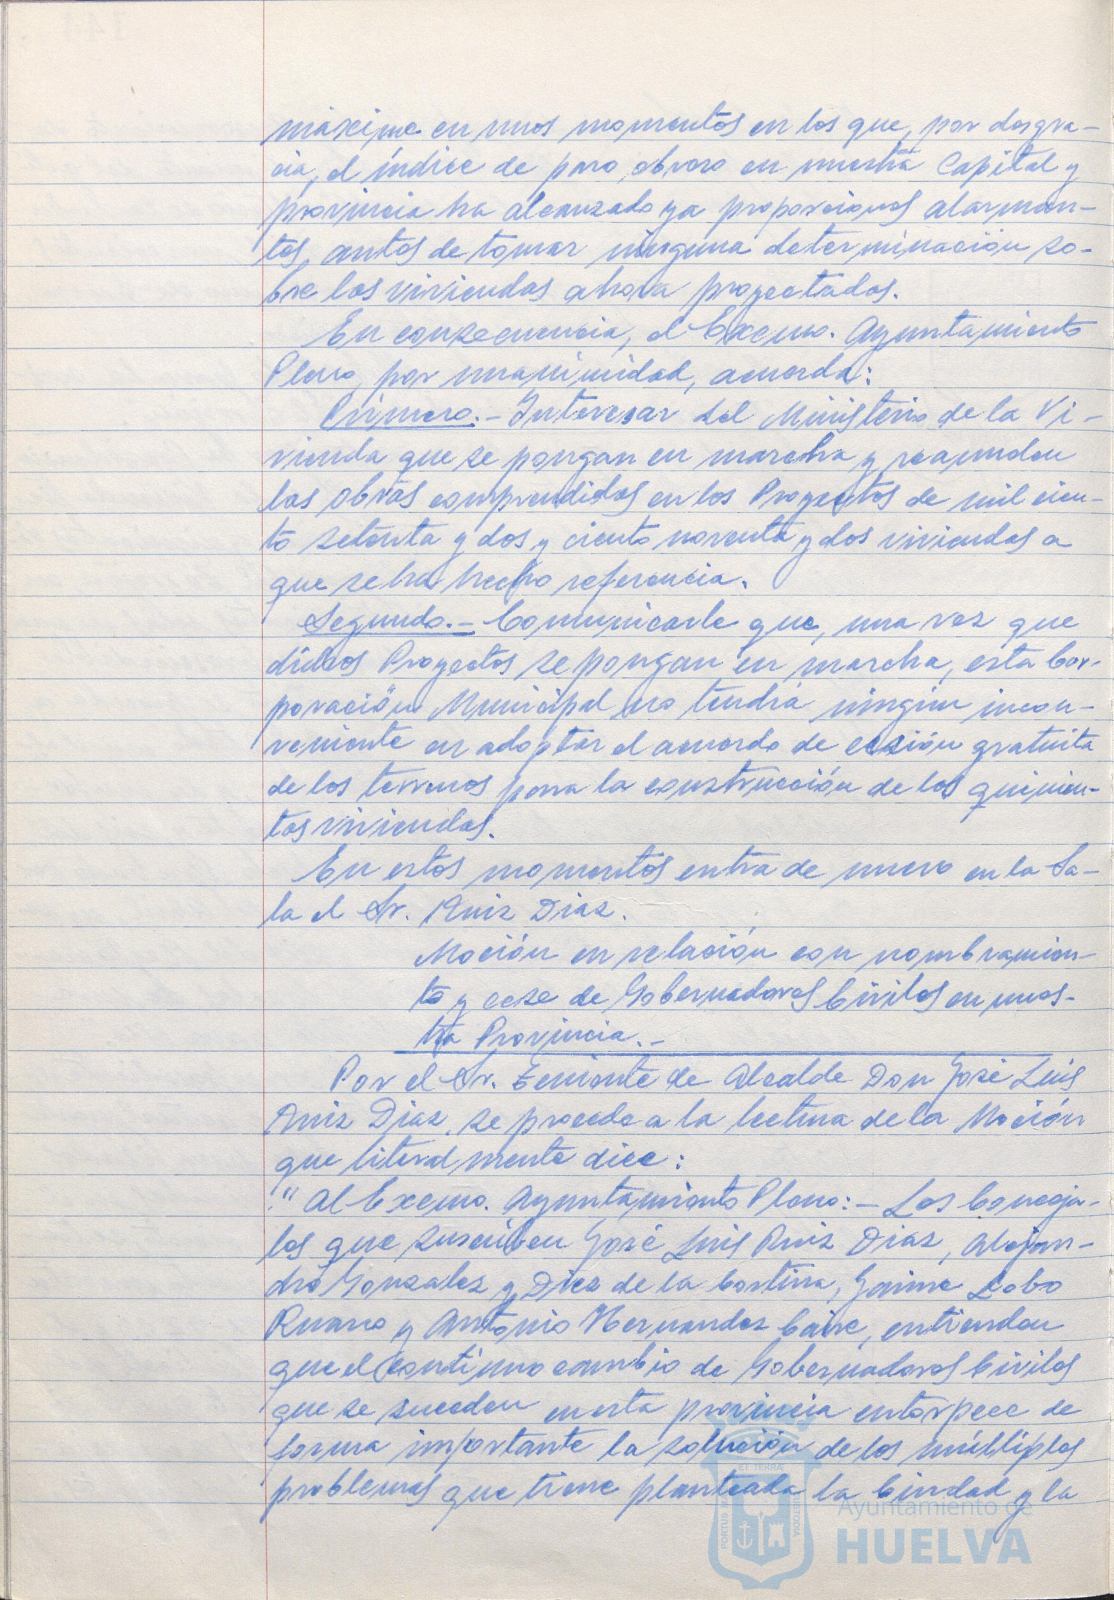 máxime en unos momentos en los que, por desgra-
cia, el índice de paro obrero en nuestra Capital y
provincia ha alcanzado ya proporciones alarman-
tes, antes de tomar ninguna determinación so-
bre las viviendas ahora proyectadas.
En consecuencia, el Excmo. Ayuntamiento
Pleno, por unanimidad, acuerda:
Primero.- Interesar del Ministerio de la Vi-
vienda que se pongan en marcha y reanuden
las obras comprendidas en los Proyectos de mil cien-
to setenta y dos y ciento noventa y dos viviendas a
que se ha hecho referencia.
Segundo.- Comunicarle que, una vez que
dichos Proyectos se pongan en marcha, esta Cor-
poración Municipal no tendrá ningún incon-
veniente en adoptar el acuerdo de cesión gratuita
de los terrenos para la construcción de las quinien-
tas viviendas.
En estos momentos entra de nuevo en la Sa-
la el Sr. Ruiz Diaz.
Moción en relación con nombramien-
to y cese de Gobernadores Civiles en nues-
tra Provincia.-
Por el Sr. Teniente de Alcalde Don José Luis
Ruiz Diaz, se procede a la lectura de la Moción
que literalmente dice:
"Al Excmo. Ayuntamiento Pleno:- Los Conceja-
les que suscriben José Luis Ruiz Diaz, Alejan-
dro Gonzalez y Diez de la Cortina, Jaime Lobo
Ruano y Antonio Hernandez Caire, entienden
que el continuo cambio de Gobernadores Civiles
que se suceden en esta provincia entorpece de
forma importante la solución de los múltiples
problemas que tiene planteada la Ciudad y la
ET TERRAE
PORTUS MARIS
CUSTODIA
Ayuntamiento de
HUELVA